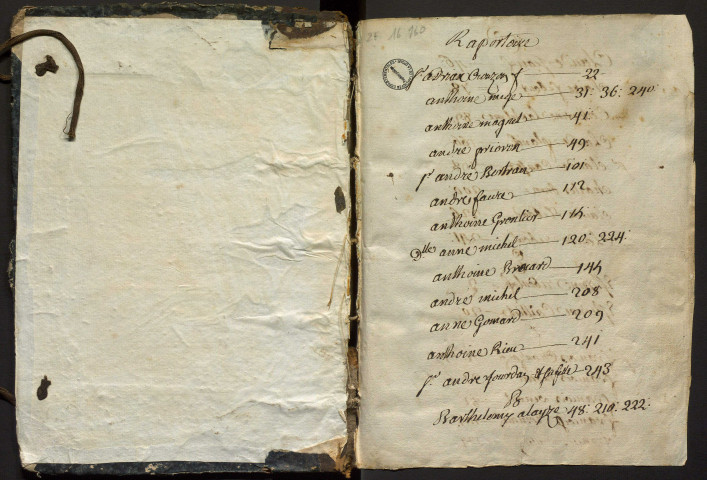 Raportoire
Sr adrian Crozon 22
anthoine mege 31: 36: 240
anthoine magnet 41
andre prioron 49
Sr andré Bertran 101
andre faure 112
anthoine Grontier 114
Dlle anne michel 120: 224
anthoine Brocard 144
andre michel 208
anne Gomard 209
anthoine Rieu 241
Sr andre Jourdan 243
B
Barthelemy alayze 48: 210: 222